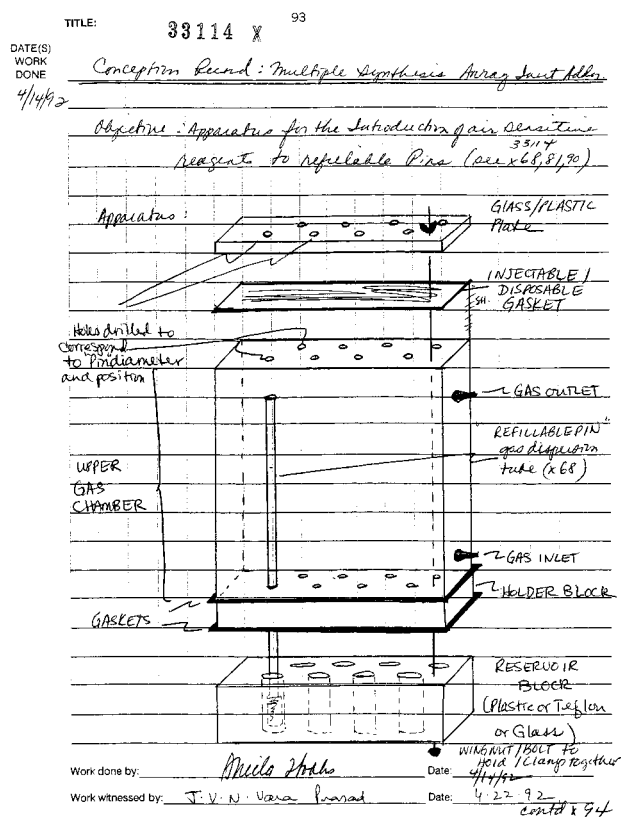 TITLE: 33114 X 93
DATE(S)
WORK
DONE
4/14/92
Conception Record: Multiple Synthesis Array Inert
Objective: Apparatus for the Introduction of air sensitive
33114
reagents to refillable Pins (see x68,81,90)
Apparatus:
GLASS/PLASTIC
Plate
INJECTABLE/
DISPOSABLE
GASKET
Holes drilled to
correspond
to "Pin diameter
and position
GAS OUTLET
"REFILLABLE PIN"
gas dispersion
tube (x68)
UPPER
GAS
CHAMBER
GAS INLET
HOLDER BLOCK
GASKETS
RESERVOIR
BLOCK
(Plastic or Teflon
or Glass)
WINGNUT/BOLT to
Hold/Clamp together
Work done by: Date: 4/14/92
Work witnessed by: J.V.N. Vara Prasad Date: 4.22.92
contd x 94